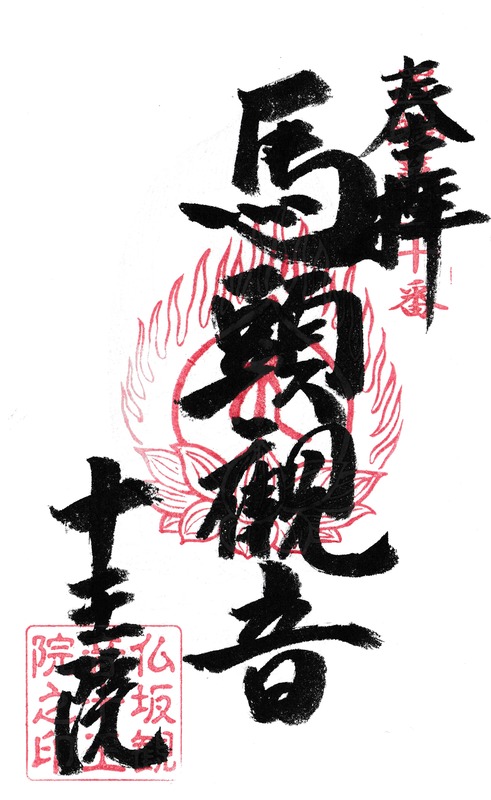 奉拝
十番
馬頭観音
十王院
仏坂観
院之印